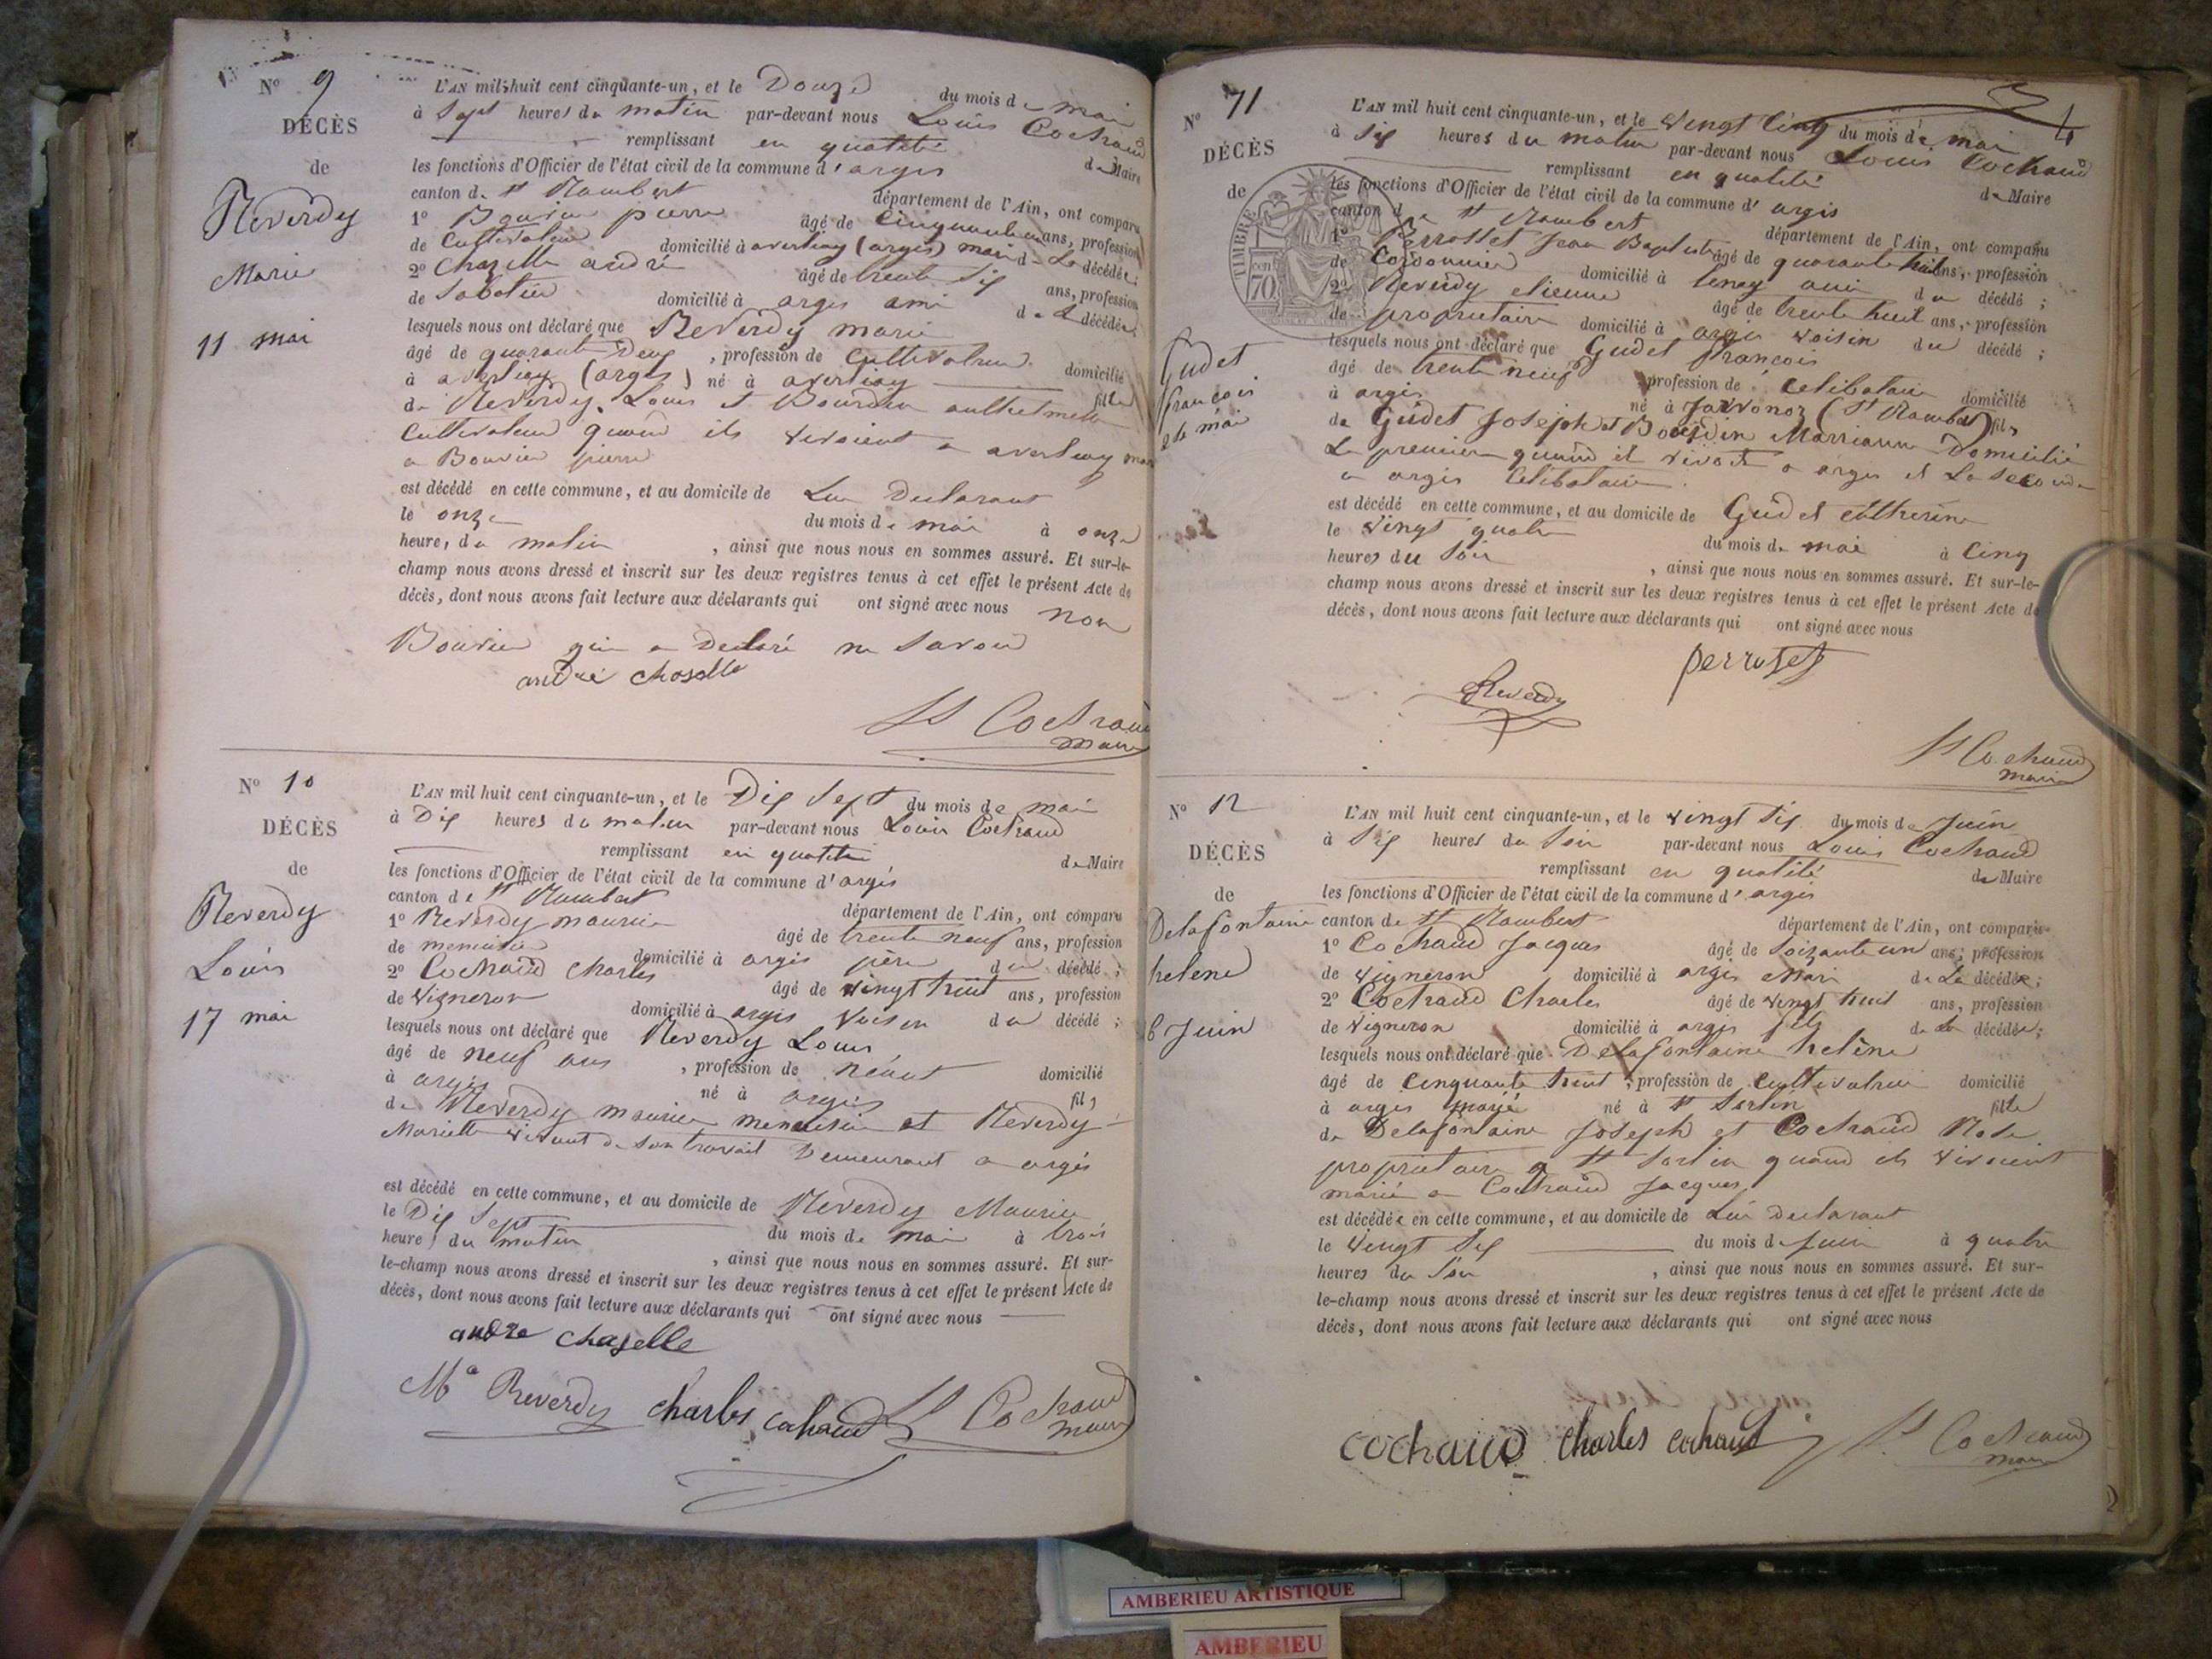 No 9
DÉCÈS
de
Reverdy
Marie
11 mai
L'AN mil huit cent cinquante-un, et le Douze du mois de mai
à Sept heures du matin par-devant nous Louis Cochaud
remplissant en qualité de Maire
les fonctions d'Officier de l'état civil de la commune d'argis
canton de St Rambert département de l'Ain, ont comparu
1o Bouvier pierre âgé de ans, profession
de Cultivateur domicilié à averliaz (argis) mari de La décédée;
2o Chazelle andré âgé de trente Six ans, profession
de Sabotier domicilié à argis ami de La décédée;
lesquels nous ont déclaré que Reverdy marie
âgé de quarante Deux, profession de Cultivateur domicilié
à (argis) né à fille
de Reverdy Louis et Bourdin
Cultivateur quand ils vivaient a mariée
a Bouvier pierre
est décédé en cette commune, et au domicile de Lui Declarant
le onze du mois de mai à onze
heures du matin, ainsi que nous nous en sommes assuré. Et sur-le-
champ nous avons dressé et inscrit sur les deux registres tenus à cet effet le présent Acte de
décès, dont nous avons fait lecture aux déclarants qui ont signé avec nous non
Bouvier qui a Declaré ne Savoir
andré chaselle
Ls Cochaud
maire
No 10
DÉCÈS
de
Reverdy
Louis
17 mai
L'AN mil huit cent cinquante-un, et le Dix Sept du mois de mai
à Dix heures du matin par-devant nous Louis Cochaud
remplissant en qualité de Maire
les fonctions d'Officier de l'état civil de la commune d'argis
canton de St Rambert département de l'Ain, ont comparu
1o Reverdy maurice âgé de trente neuf ans, profession
de menuisier domicilié à argis père du décédé;
2o Cochaud Charles âgé de vingt huit ans, profession
de Vigneron domicilié à argis Voisin du décédé;
lesquels nous ont déclaré que Reverdy Louis
âgé de neuf ans, profession de néant domicilié
à argis né à argis fils
de Reverdy maurice menuisier et Reverdy
Mariette vivant de Son travail Demeurant a argis
est décédé en cette commune, et au domicile de Reverdy Maurice
le Dix Sept du mois de mai à trois
heures du matin, ainsi que nous nous en sommes assuré. Et sur-
le-champ nous avons dressé et inscrit sur les deux registres tenus à cet effet le présent Acte de
décès, dont nous avons fait lecture aux déclarants qui ont signé avec nous
andre chaselle
Mce Reverdy charles cochaud Ls Cochaud
maire
No 11
DÉCÈS
de
Gudet
francois
24 mai
TIMBRE
cen
70
4
L'AN mil huit cent cinquante-un, et le vingt Cinq du mois de mai
à Six heures du matin par-devant nous Louis Cochaud
remplissant en qualité de Maire
les fonctions d'Officier de l'état civil de la commune d'argis
canton de St Rambert département de l'Ain, ont comparu
1o Perrosset Jean Baptiste âgé de quarante huit ans, profession
de Cordonnier domicilié à tenay ami du décédé;
2o Reverdy etienne âgé de trente huit ans, profession
de proprietaire domicilié à argis voisin du décédé;
lesquels nous ont déclaré que Gudet francois
âgé de trente neuf profession de Celibataire domicilié
à argis né à Javvonoz (St Rambert) fils
de Gudet Joseph et Bourdin Marrianne Domicilié
Le premier quand il vivait a argis et La Seconde
a argis Celibataire.
est décédé en cette commune, et au domicile de Gudet Catherine
le vingt quatre du mois de mai à Cinq
heures du Soir, ainsi que nous nous en sommes assuré. Et sur-le-
champ nous avons dressé et inscrit sur les deux registres tenus à cet effet le présent Acte de
décès, dont nous avons fait lecture aux déclarants qui ont signé avec nous
perroset
Reverdy
Ls Cochaud
maire
No 12
DÉCÈS
de
Delafontaine
helene
6 Juin
L'AN mil huit cent cinquante-un, et le vingt Six du mois de Juin
à Six heures du Soir par-devant nous Louis Cochaud
remplissant en qualité de Maire
les fonctions d'Officier de l'état civil de la commune d'argis
canton de St Rambert département de l'Ain, ont comparu
1o Cochaud Jacques âgé de Soixante un ans, profession
de Vigneron domicilié à argis Mari de La décédée;
2o Cochaud Charles âgé de vingt huit ans, profession
de Vigneron domicilié à argis fils de La décédée;
lesquels nous ont déclaré que Delafontaine helène
âgé de Cinquante huit, profession de Cultivatrice domicilié
à argis mariée né à St Sorlin fille
de Delafontaine Joseph et Cochaud Rose
proprietaire a St Sorlin quand ils vivaient
mariée a Cochaud Jacques
est décédée en cette commune, et au domicile de Lui Declarant
le vingt Six du mois de Juin à quatre
heures du Soir, ainsi que nous nous en sommes assuré. Et sur-
le-champ nous avons dressé et inscrit sur les deux registres tenus à cet effet le présent Acte de
décès, dont nous avons fait lecture aux déclarants qui ont signé avec nous
cochaud charles cochaud Ls Cochaud
maire
AMBERIEU ARTISTIQUE
AMBERIEU